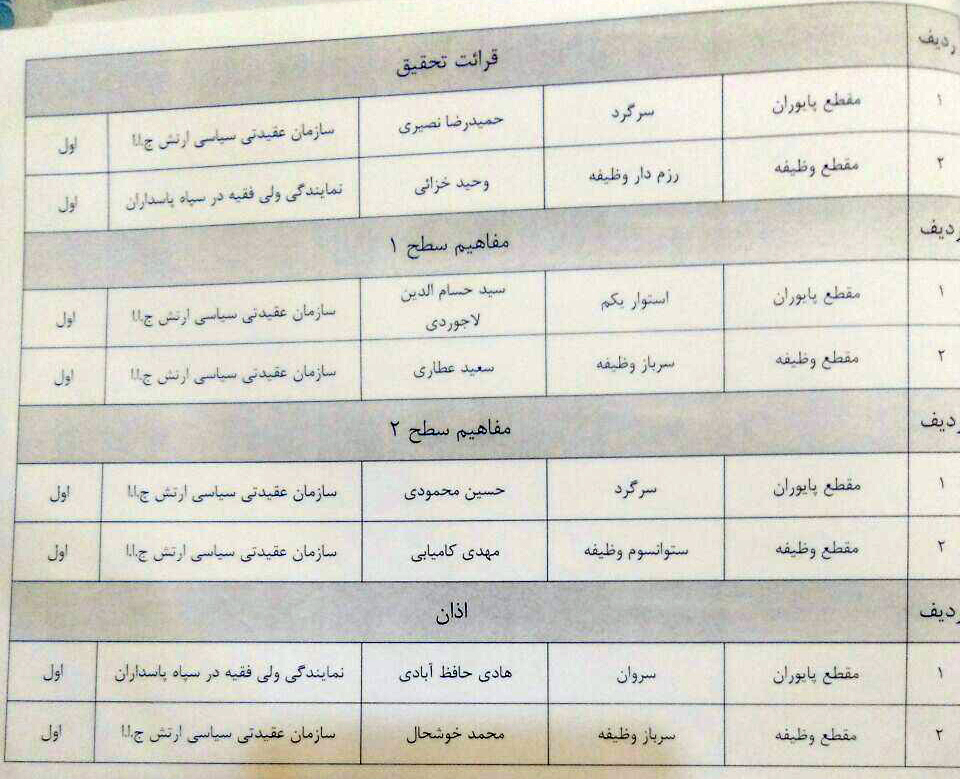 ردیف قرائت تحقیق
۱ مقطع پایوران سرگرد حمیدرضا نصیری سازمان عقیدتی سیاسی ارتش ج.ا.ا اول
۲ مقطع وظیفه رزم دار وظیفه وحید خزائی نمایندگی ولی فقیه در سپاه پاسداران اول
ردیف مفاهیم سطح ۱
۱ مقطع پایوران استوار یکم سید حسام الدین لاجوردی سازمان عقیدتی سیاسی ارتش ج.ا.ا اول
۲ مقطع وظیفه سرباز وظیفه سعید عطاری سازمان عقیدتی سیاسی ارتش ج.ا.ا اول
ردیف مفاهیم سطح ۲
۱ مقطع پایوران سرگرد حسین محمودی سازمان عقیدتی سیاسی ارتش ج.ا.ا اول
۲ مقطع وظیفه ستوانسوم وظیفه مهدی کامیابی سازمان عقیدتی سیاسی ارتش ج.ا.ا اول
ردیف اذان
۱ مقطع پایوران سروان هادی حافظ آبادی نمایندگی ولی فقیه در سپاه پاسداران اول
۲ مقطع وظیفه سرباز وظیفه محمد خوشحال سازمان عقیدتی سیاسی ارتش ج.ا.ا اول